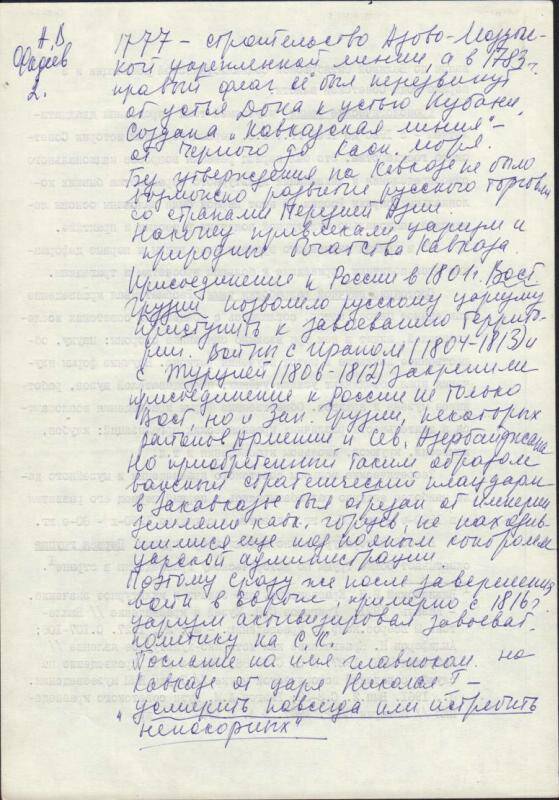 А.В
Фадеев
2.
1777 – строительство Азово-Моздок-
кой укрепленной линии, а в 1783 г.
правый фланг её был передвинут
от устья Дона к устью Кубани.
Создана "Кавказская линия" –
от Черного до Касп. моря.
Без утверждения на Кавказе не было
возможно развитие русского торговли
со странами Передней Азии.
Наконец привлекали царизм и
природные богатства Кавказа.
Присоединение к России в 1801 г. Вост
Грузии позволило русскому царизму
приступить к завоеванию террито-
рии. Войны с Ираном (1804-1813) и
с Турцией (1806-1812) закрепили
присоединение к России не только
Вост, но и Зап. Грузии, некоторых
районов Армении и Сев. Азербайджана
Но приобретенный таким образом
важный стратегический плацдарм
в Закавказье был отрезан от империи
землями кавк. горцев, не находив-
шимися еще под полным контролем
царской администрации.
Поэтому сразу же после завершения
войн в Европе, примерно с 1816 г.
царизм активизировал завоеват.
политику на С.К.
Послание на имя главноком. на
Кавказе от царя Николая I –
"усмирить навсегда или истребить
непокорных"